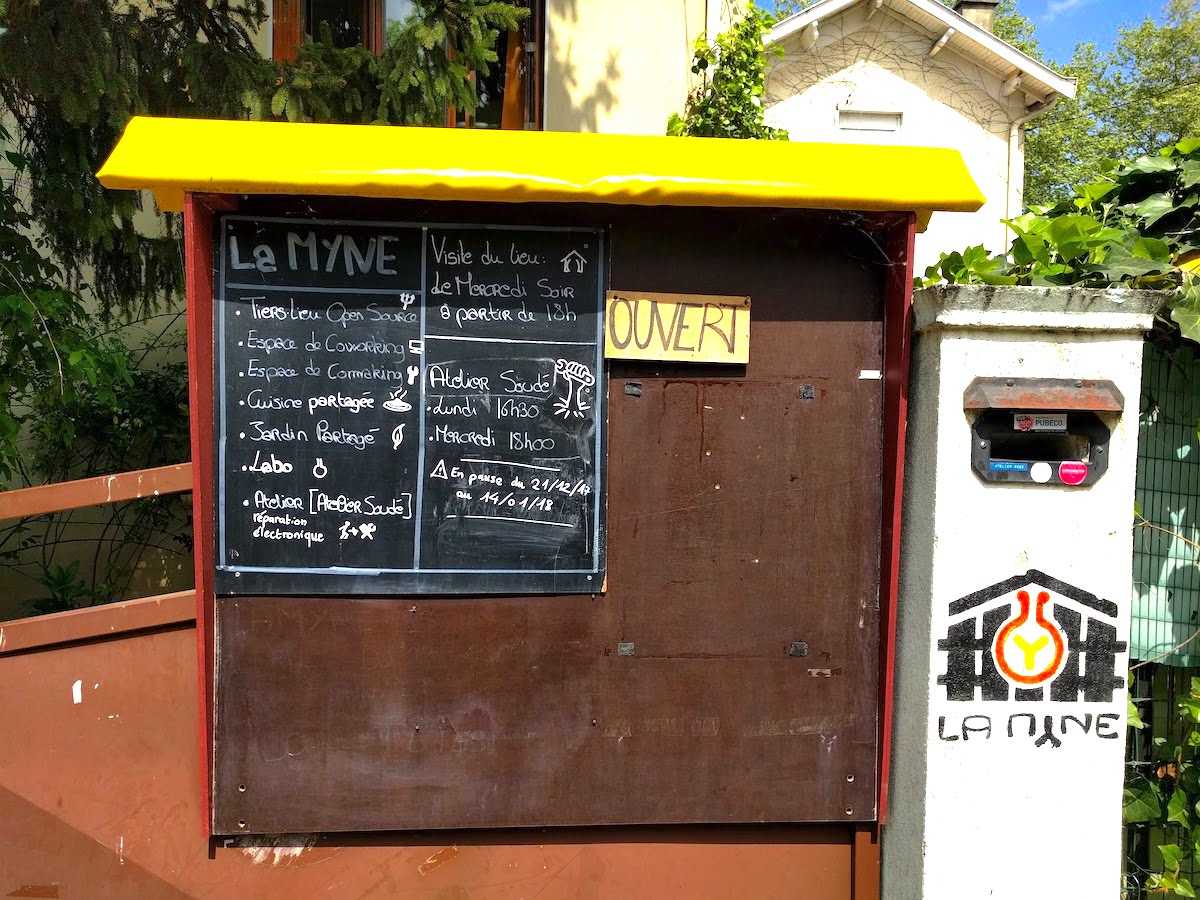 La MYNE
• Tiers-Lieu Open Source
• Espace de Coworking
• Espace de Comaking
• Cuisine partagée
• Jardin Partagé
• Labo
• Atelier [Atelier Soudé]
réparation
électronique
Visite du lieu :
de Mercredi Soir
à partir de 18h
Atelier Soudé
• Lundi 16h30
• Mercredi 18h00
En pause du 21/12/17
au 14/01/18
OUVERT
PUBECO
LA MYNE